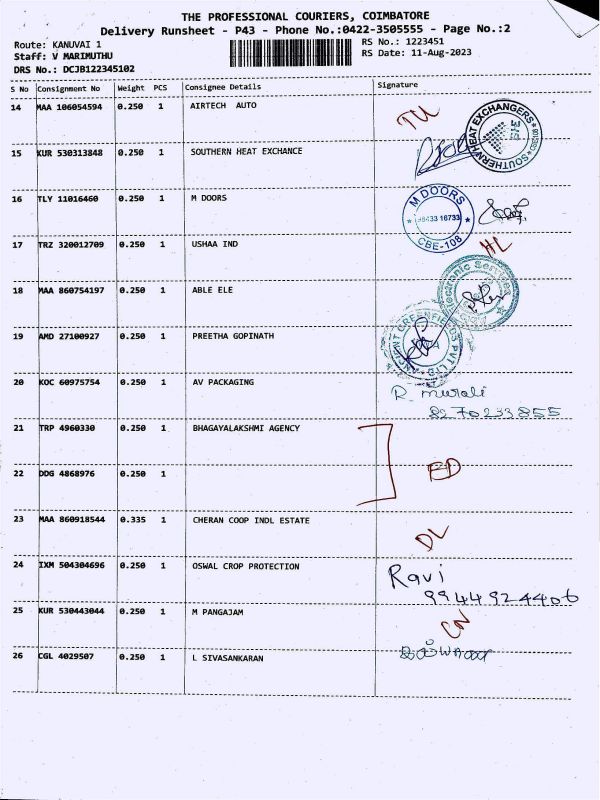 THE PROFESSIONAL COURIERS, COIMBATORE
Delivery Runsheet - P43 - Phone No.:0422-3505555 - Page No.:2
Route: KANUVAI 1 RS No.: 1223451
Staff: V MARIMUTHU RS Date: 11-Aug-2023
DRS No.: DCJB122345102
S No Consignment No Weight PCS Consignee Details Signature
14 MAA 106054594 0.250 1 AIRTECH AUTO
SOUTHERN HEAT EXCHANGERS
15 KUR 530313848 0.250 1 SOUTHERN HEAT EXCHANCE
16 TLY 11016460 0.250 1 M DOORS
M DOORS
98433 16733
CBE-108
17 TRZ 320012709 0.250 1 USHAA IND
HL
18 MAA 860754197 0.250 1 ABLE ELE
Electronic Services
19 AMD 27100927 0.250 1 PREETHA GOPINATH
PVT LTD
20 KOC 60975754 0.250 1 AV PACKAGING R. murali
8270233855
21 TRP 4960330 0.250 1 BHAGAYALAKSHMI AGENCY
22 DDG 4868976 0.250 1 ED
23 MAA 860918544 0.335 1 CHERAN COOP INDL ESTATE DL
24 IXM 504304696 0.250 1 OSWAL CROP PROTECTION Ravi
9944924406
25 KUR 530443044 0.250 1 M PANGAJAM CN
26 CGL 4029507 0.250 1 L SIVASANKARAN